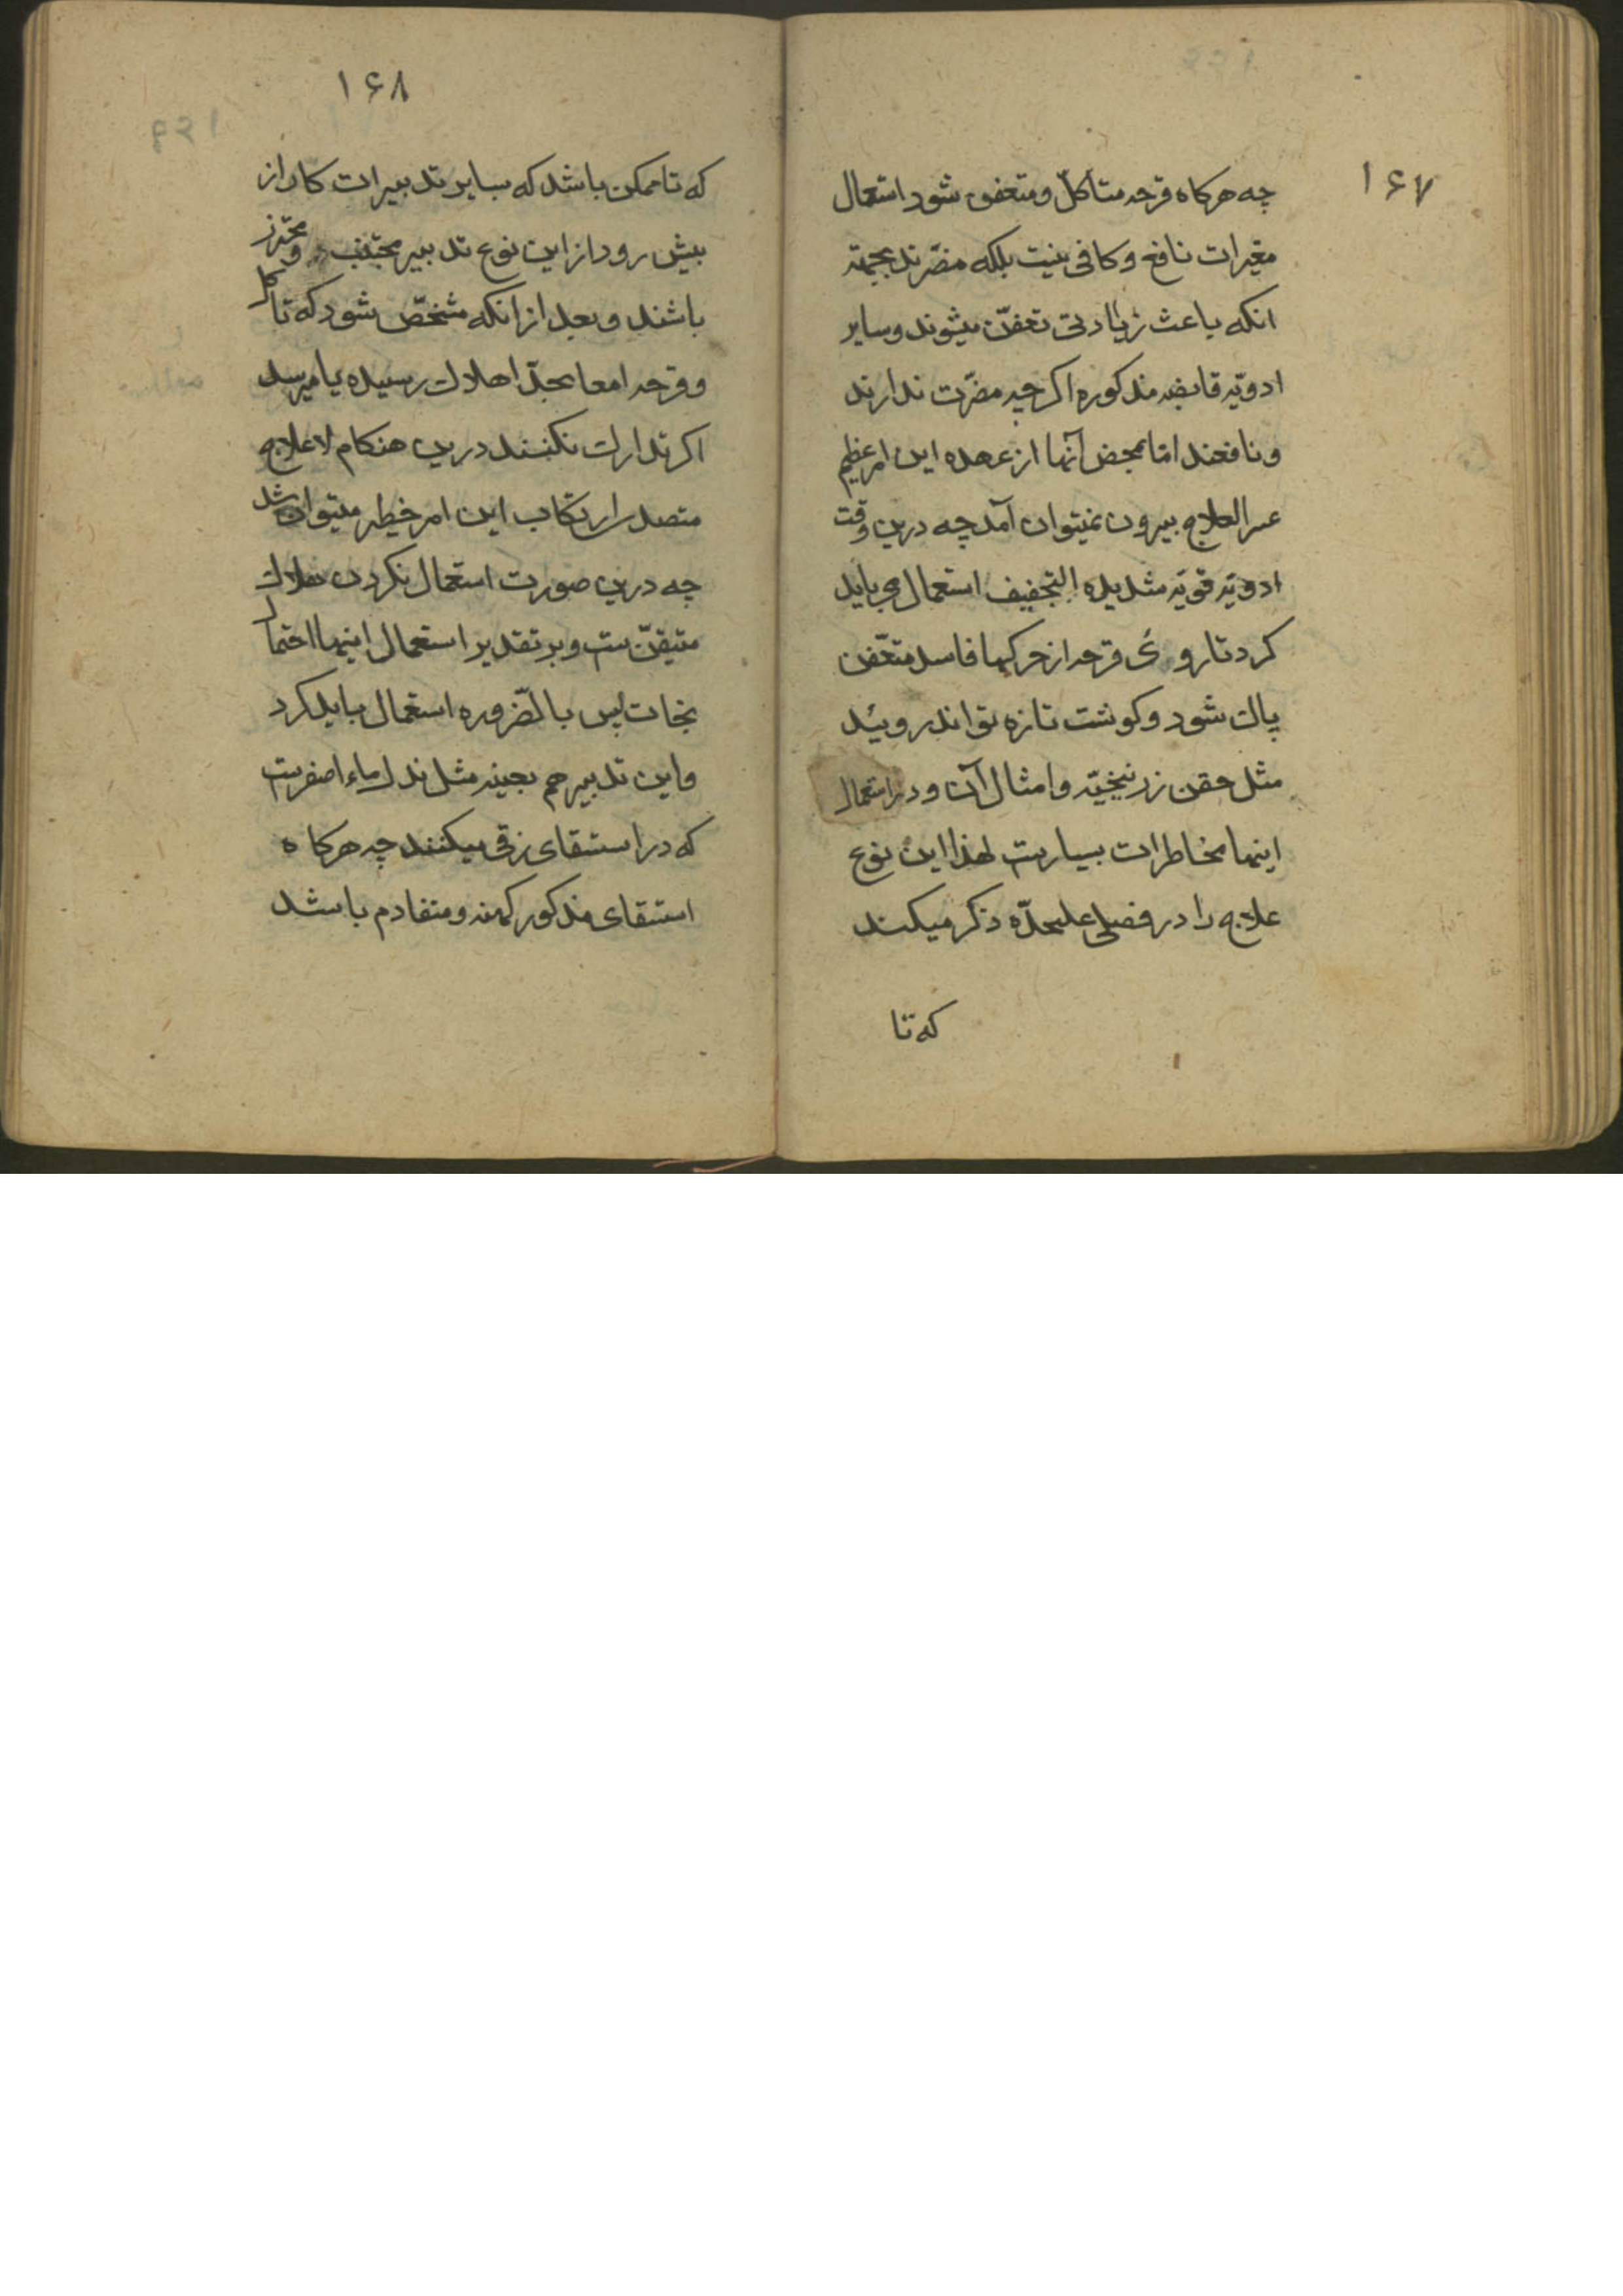 ۱۶۷
چه هرکاه قرحه متأکل و متعفن شود استعمال
مغریات نافع و کافی نیست بلکه مضرّند بجهة
انکه باعث زیادتی تعفّن میشوند و سایر
ادویّه قابضه مذکوره اکرچه مضرّت ندارند
و نافعند امّا بمحض آنها از عهده این امر عظیم
عسر العلاج بیرون نمیتوان آمد چه درین وقت
ادویّه قویّه شدیده التجفیف استعمال می باید
کرد تا روی قرحه از چرکها فاسد متعّفن
پاک شود و کوشت تازه تواند روئید
مثل حقن زرنیخیّه و امثال آن و در استعمال
اینها مخاطرات بسیارست لهذا این نوع
علاج را در فصلی علیحدّه ذکر میکند
که تا
۱۶۸
که تا ممکن باشد که بسایر تدبیرات کار از
پیش رود از این نوع تدبیر مجتنب و محترز
باشند و بعد از انکه مشخّص شود که تاکل
و قرحه امعا بحدّ اهلاک رسیده یا میرسد
اکر تدارک نکنند درین هنکام لاعلاج
متصدی ارتکاب این امر خطیر میتوان شد
چه درین صورت استعمال نکردن هلاک
متیقّن ست و بر تقدیر استعمال اینها احتمال
نجات پس بالضّروره استعمال باید کرد
و این تدبیر هم بعینه مثل بذل ماء اصفرست
که در استسقای زقی میکنند چه هرکاه
استسقای مذکور کهنه و متقادم باشد